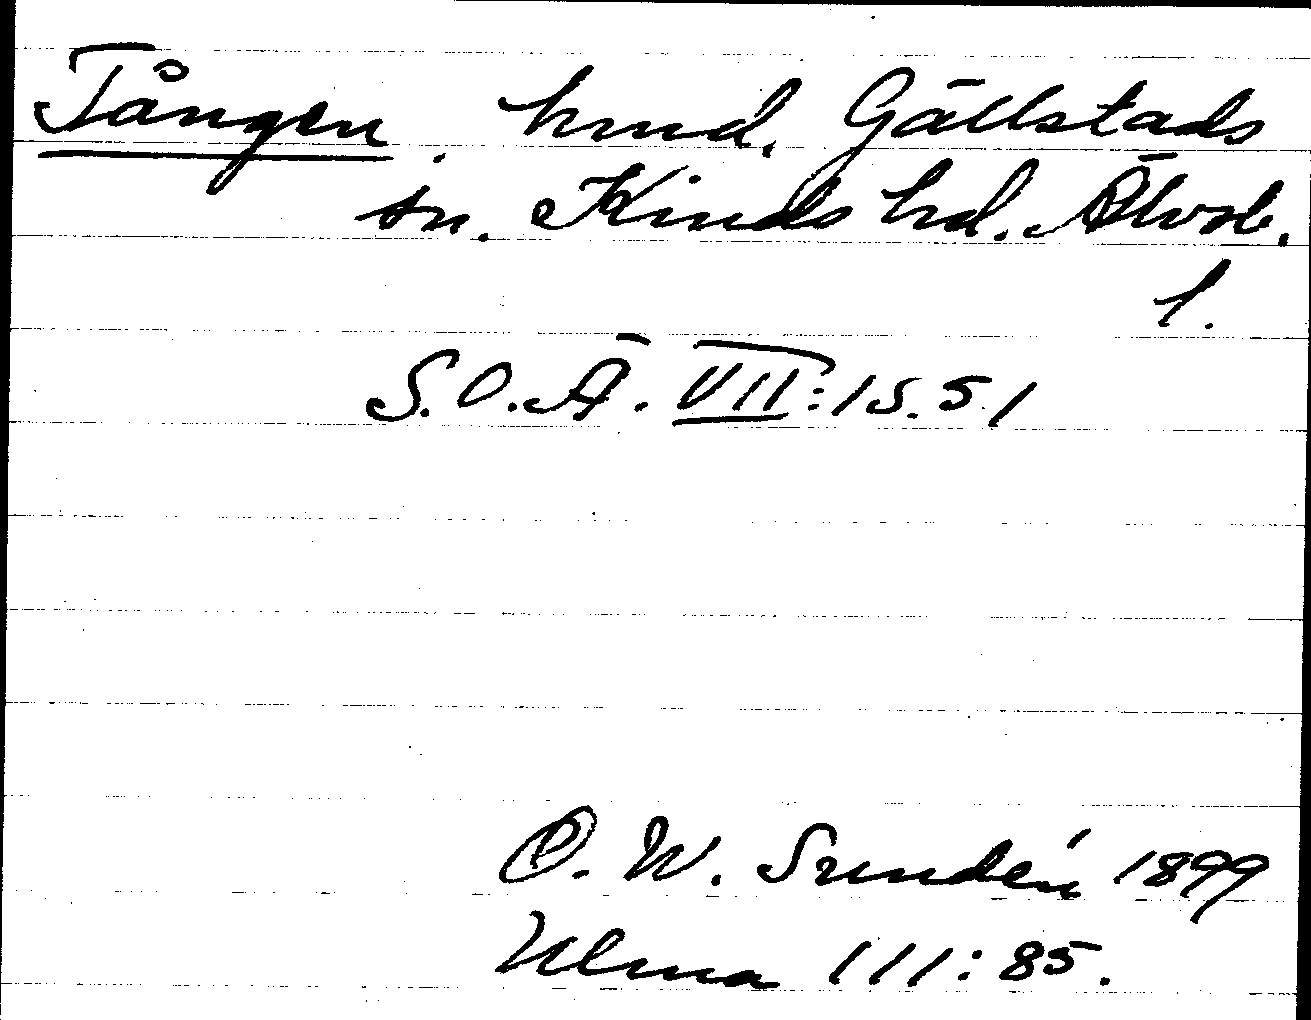 Tången. hmd. Gällstads
sn. Kinds hd. Älvsb.
l.
S.O.Ä. VII:1 S. 51
O. W. Sundén 1899
Ulma 111:85.